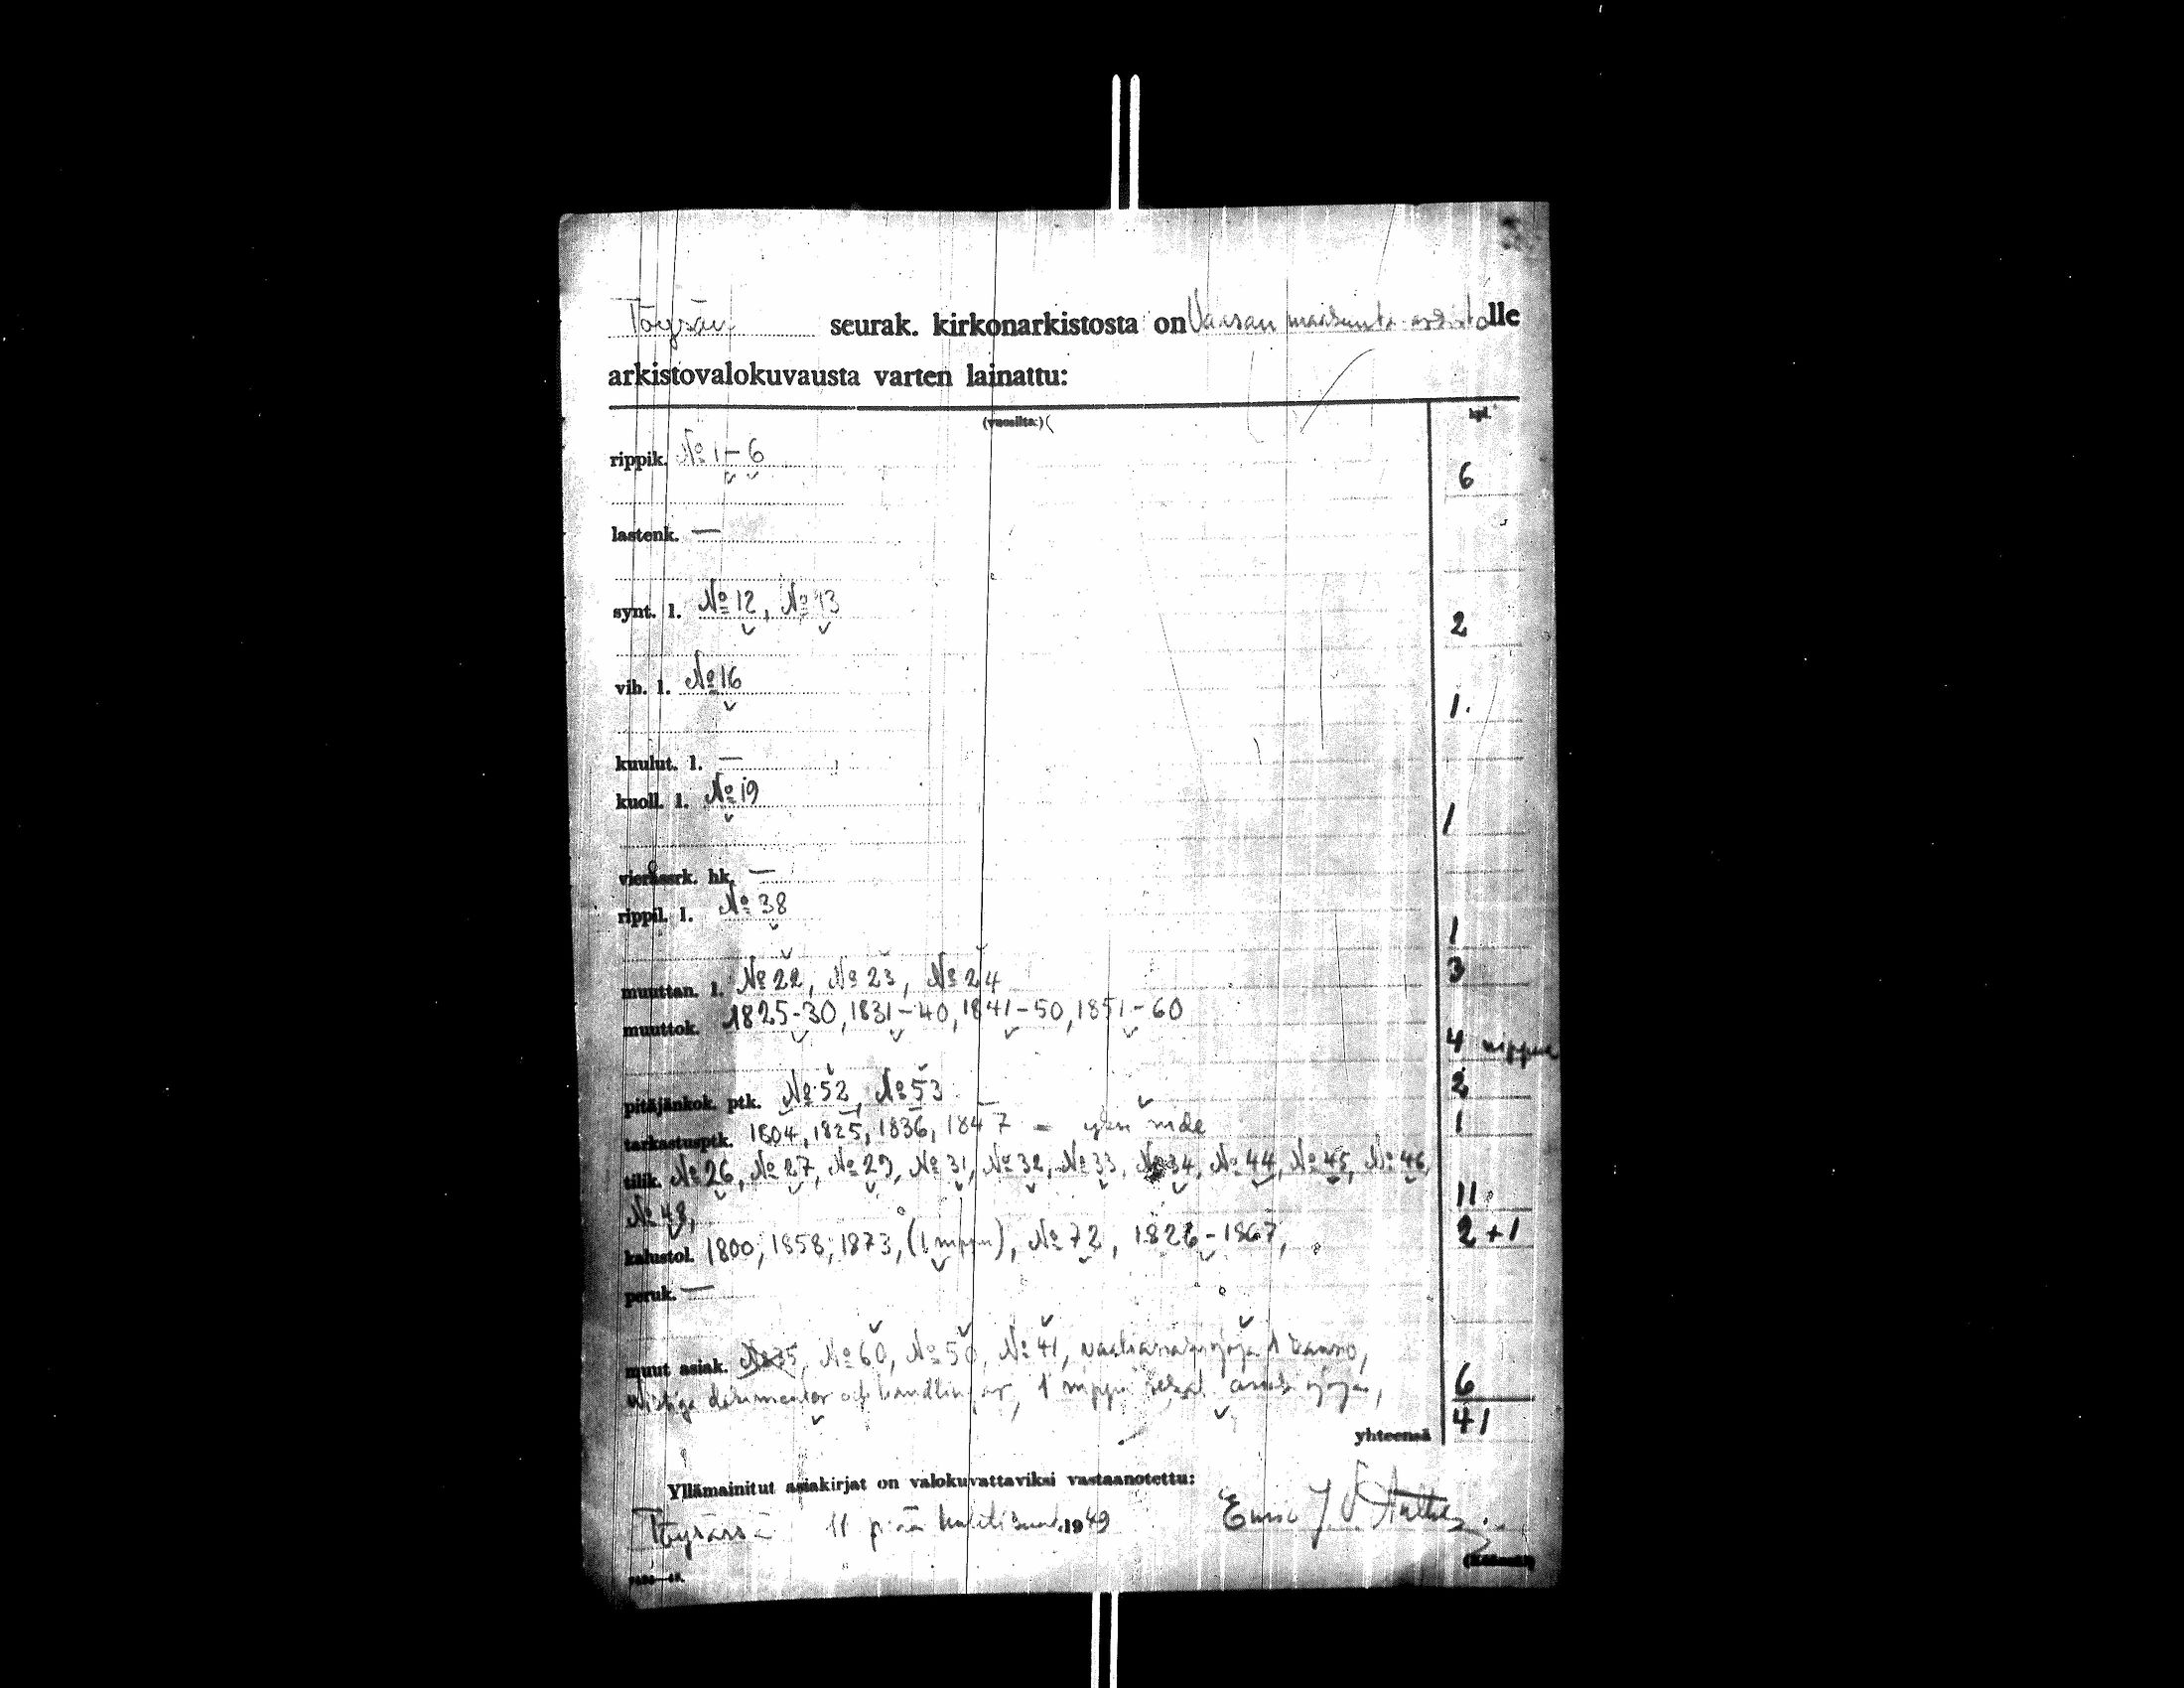 Töysän seurak. kirkonarkistosta on Vaasan maakunta-arkistolle
arkistovalokuvausta varten lainattu:
(vuosilta:) kpl.
rippik. № 1-6 6
lastenk. —
synt. l. № 12, № 13 2
vih. l. № 16 1.
kuulut. l. —
kuoll. l. № 19 1
vierassrk. hk. —
rippil. l. № 38 1
muuttan. l. № 22, № 23, № 24 3
muuttok. 1825-30, 1831-40, 1841-50, 1851-60 4 nippua
pitäjänkok. ptk. № 52, № 53 2
tarkastusptk. 1804, 1825, 1836, 1847 = yksi nide 1
tilik. № 26, № 27, № 29, № 31, № 32, № 33, № 34, № 44, № 45, № 46,
№ 48, 11
kalustol. 1800, 1858, 1873, (1 nippu), № 72, 1828-1867, 2+1
peruk. —
muut asiak. № 60, № 50, № 41, 1
dokumenter och handlingar, 1 nippu sekal. 6
yhteensä 41
Yllämainitut asiakirjat on valokuvattaviksi vastaanotettu:
Töysässä 11 p:nä huhtikuun 1949